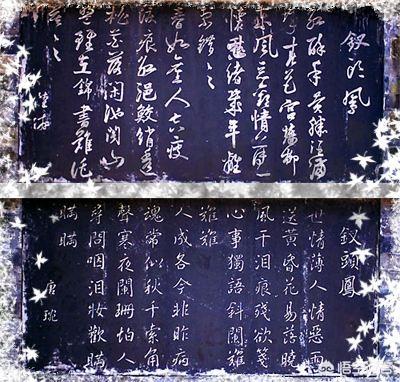 釵頭鳳
紅酥手黃縢酒滿
春色宮牆柳
東風惡歡情薄一
懷愁緒幾年離
索錯
春如舊人空瘦
淚痕紅浥鮫綃透
桃花落閑池閣山
盟雖在錦書難託
釵頭鳳
世情薄人情惡雨
送黃昏花易落曉
風干淚痕殘欲箋
心事獨語斜闌難
難難
人成各今非昨病
魂常似秋千索角
聲寒夜闌珊怕人
尋問咽淚妝歡瞞
瞞瞞
唐琬